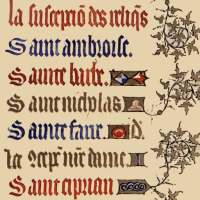 la susceptiō des reliq̄s
Sainte ambroise.
Sainte barbe.
Saint nicholas
Sainte fare. d.
la 9cept' n're dame.
Saint ciprian